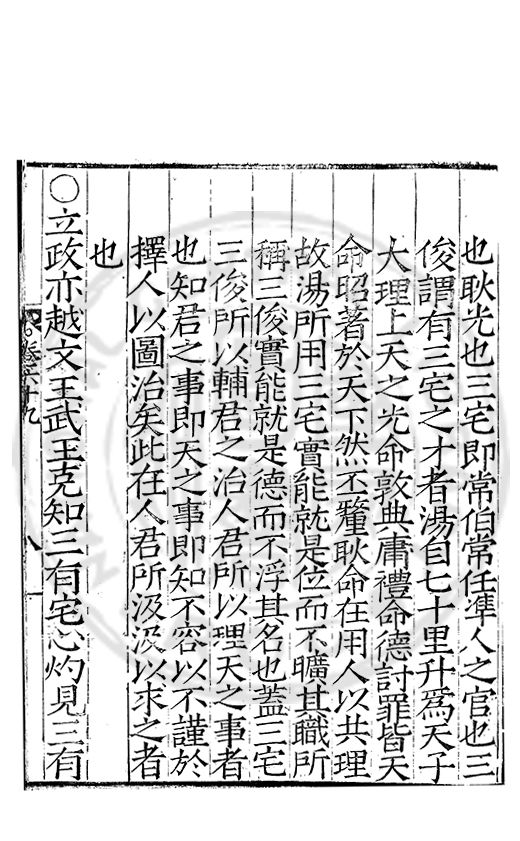 也耿光也三宅即常伯常任準人之官也三
俊謂有三宅之才者湯自七十里升為天子
大理上天之光命敦典庸禮命德討罪皆天
命昭著於天下然丕釐耿命在用人以共理
故湯所用三宅實能就是位而不曠其職所
稱三俊實能就是德而不浮其名也蓋三宅
三俊所以輔君之治人君所以理天之事者
也知君之事即天之事即知不容以不謹於
擇人以圖治矣此在人君所汲汲以求之者
也
○立政亦越文王武王克知三有宅心灼見三有
卷六十九
八